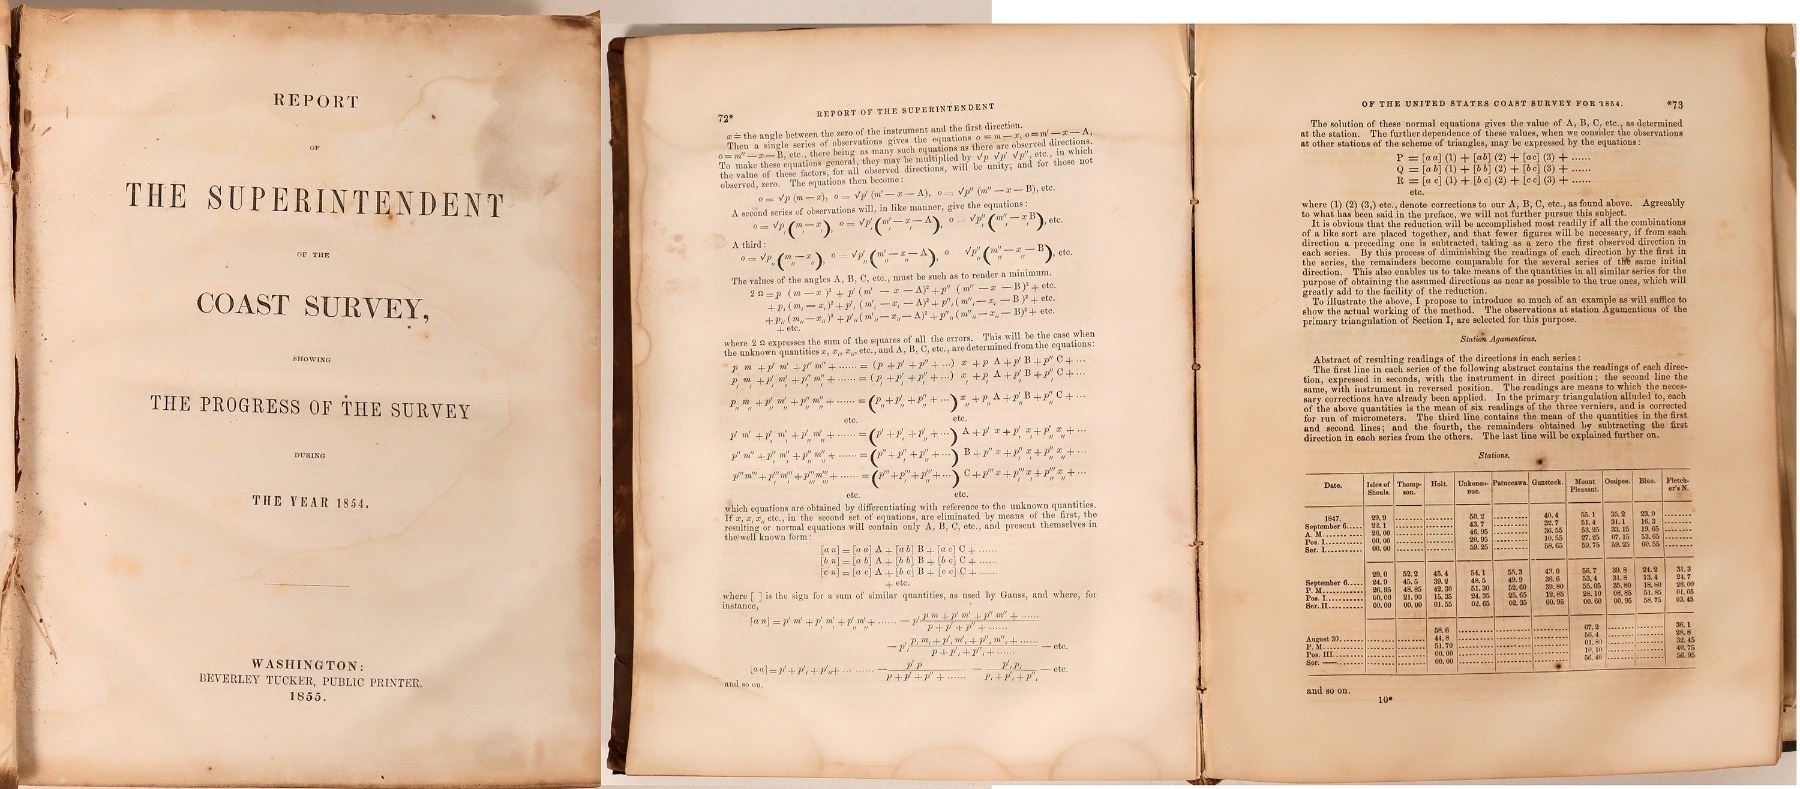 REPORT
OF
THE SUPERINTENDENT
OF THE
COAST SURVEY,
SHOWING
THE PROGRESS OF THE SURVEY
DURING
THE YEAR 1854.
WASHINGTON:
BEVERLEY TUCKER, PUBLIC PRINTER.
1855.
72* REPORT OF THE SUPERINTENDENT
x = the angle between the zero of the instrument and the first direction.
Then a single series of observations gives the equations o = m — x, o = m′ — x — A,
o = m″ — x — B, etc., there being as many such equations as there are observed directions.
To make these equations general, they may be multiplied by √p √p′ √p″, etc., in which
the value of these factors, for all observed directions, will be unity; and for those not
observed, zero. The equations then become:
o = √p (m — x), o = √p′ (m′ — x — A), o = √p″ (m″ — x — B), etc.
A second series of observations will, in like manner, give the equations:
A third:
The values of the angles A, B, C, etc., must be such as to render a minimum.
2 Ω = p (m — x)² + p′ (m′ — x — A)² + p″ (m″ — x — B)² + etc.
+ p, (m, — x,)² + p′, (m′, — x, — A)² + p″, (m″, — x, — B)² + etc.
+ p,, (m,, — x,,)² + p′,, (m′,, — x,, — A)² + p″,, (m″,, — x,, — B)² + etc.
+ etc.
where 2 Ω expresses the sum of the squares of all the errors. This will be the case when
the unknown quantities x, x,, x,,, etc., and A, B, C, etc., are determined from the equations:
p m + p′ m′ + p″ m″ + ...... = (p + p′ + p″ + ...) x + p′ A + p″ B +
etc. etc.
etc. etc.
which equations are obtained by differentiating with reference to the unknown quantities.
If x, x, x,, etc., in the second set of equations, are eliminated by means of the first, the
resulting or normal equations will contain only A, B, C, etc., and present themselves in
the well known form:
[a n] = [a a] A + [a b] B + [a c] C + ......
[b n] = [a b] A + [b b] B + [b c] C + ......
[c n] = [a c] A + [b c] B + [c c] C + ......
+ etc.
where [ ] is the sign for a sum of similar quantities, as used by Gauss, and where, for
instance,
and so on.
OF THE UNITED STATES COAST SURVEY FOR 1854. *73
The solution of these normal equations gives the value of A, B, C, etc., as determined
at the station. The further dependence of these values, when we consider the observations
at other stations of the scheme of triangles, may be expressed by the equations:
P = [a a] (1) + [a b] (2) + [a c] (3) + ......
Q = [a b] (1) + [b b] (2) + [b c] (3) + ......
R = [a c] (1) + [b c] (2) + [c c] (3) + ......
etc.
where (1) (2) (3,) etc., denote corrections to our A, B, C, etc., as found above. Agreeably
to what has been said in the preface, we will not further pursue this subject.
It is obvious that the reduction will be accomplished most readily if all the combinations
of a like sort are placed together, and that fewer figures will be necessary, if from each
direction a preceding one is subtracted, taking as a zero the first observed direction in
each series. By this process of diminishing the readings of each direction by the first in
the series, the remainders become comparable for the several series of the same initial
direction. This also enables us to take means of the quantities in all similar series for the
purpose of obtaining the assumed directions as near as possible to the true ones, which will
greatly add to the facility of the reduction.
To illustrate the above, I propose to introduce so much of an example as will suffice to
show the actual working of the method. The observations at station Agamenticus of the
primary triangulation of Section I, are selected for this purpose.
Station Agamenticus.
Abstract of resulting readings of the directions in each series:
The first line in each series of the following abstract contains the readings of each direc-
tion, expressed in seconds, with the instrument in direct position; the second line the
same, with instrument in reversed position. The readings are means to which the neces-
sary corrections have already been applied. In the primary triangulation alluded to, each
of the above quantities is the mean of six readings of the three verniers, and is corrected
for run of micrometers. The third line contains the mean of the quantities in the first
and second lines; and the fourth, the remainders obtained by subtracting the first
direction in each series from the others. The last line will be explained further on.
Stations.
Date. Isles of Shoals. Thomp-son. Holt. Unkonoo-nuc. Patuccawa. Gunstock. Mount Pleasant. Ossipee. Blue. Fletch-er's N.
1847. 29.9 50.2 40.4 55.1 35.2 23.0
September 6..... 22.1 43.7 32.7 51.4 31.1 16.3
A. M. 26.00 46.95 36.55 53.25 33.15 19.65
Pos. I. 00.00 20.95 10.55 27.25 07.15 53.65
Ser. I. 00.00 59.25 58.65 59.75 59.25 00.55
29.0 52.2 45.4 54.1 55.3 43.0 56.7 39.8 24.2 31.3
September 6..... 24.9 45.5 39.2 48.5 49.9 36.6 53.4 31.8 13.4 24.7
P. M. 26.95 48.85 42.30 51.30 52.60 39.80 55.05 35.80 18.80 28.00
Pos. I. 00.00 21.90 15.35 24.35 25.65 12.85 28.10 08.85 51.85 01.05
Ser. II. 00.00 00.00 01.55 02.65 02.35 00.95 00.60 00.95 58.75 03.45
58.6 67.2 36.1
August 30. 44.8 56.4 28.8
P. M. 51.70 01.80 32.45
Pos. III. 00.00 10.10 40.75
Ser. — 00.00 56.40 56.95
and so on.
10*